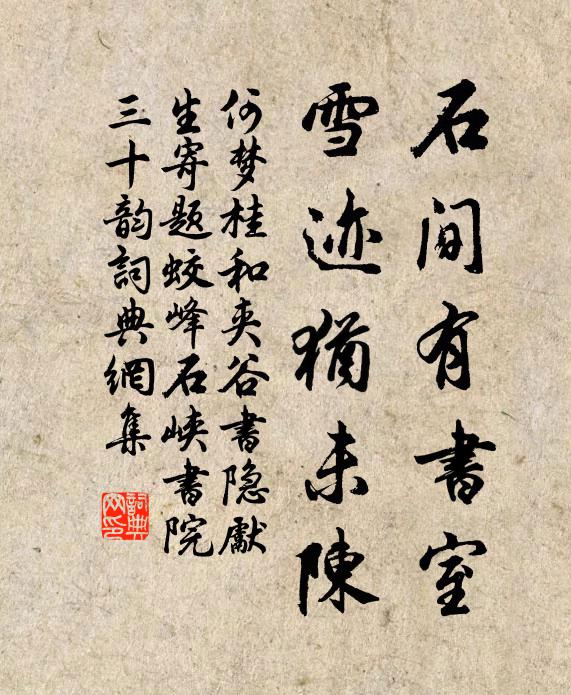 石间有書室
雪迹猶未陳
何梦桂和夹谷书隐獻
生寄题蛟峰石峡書院
三十韵詞典網集
詞典网印